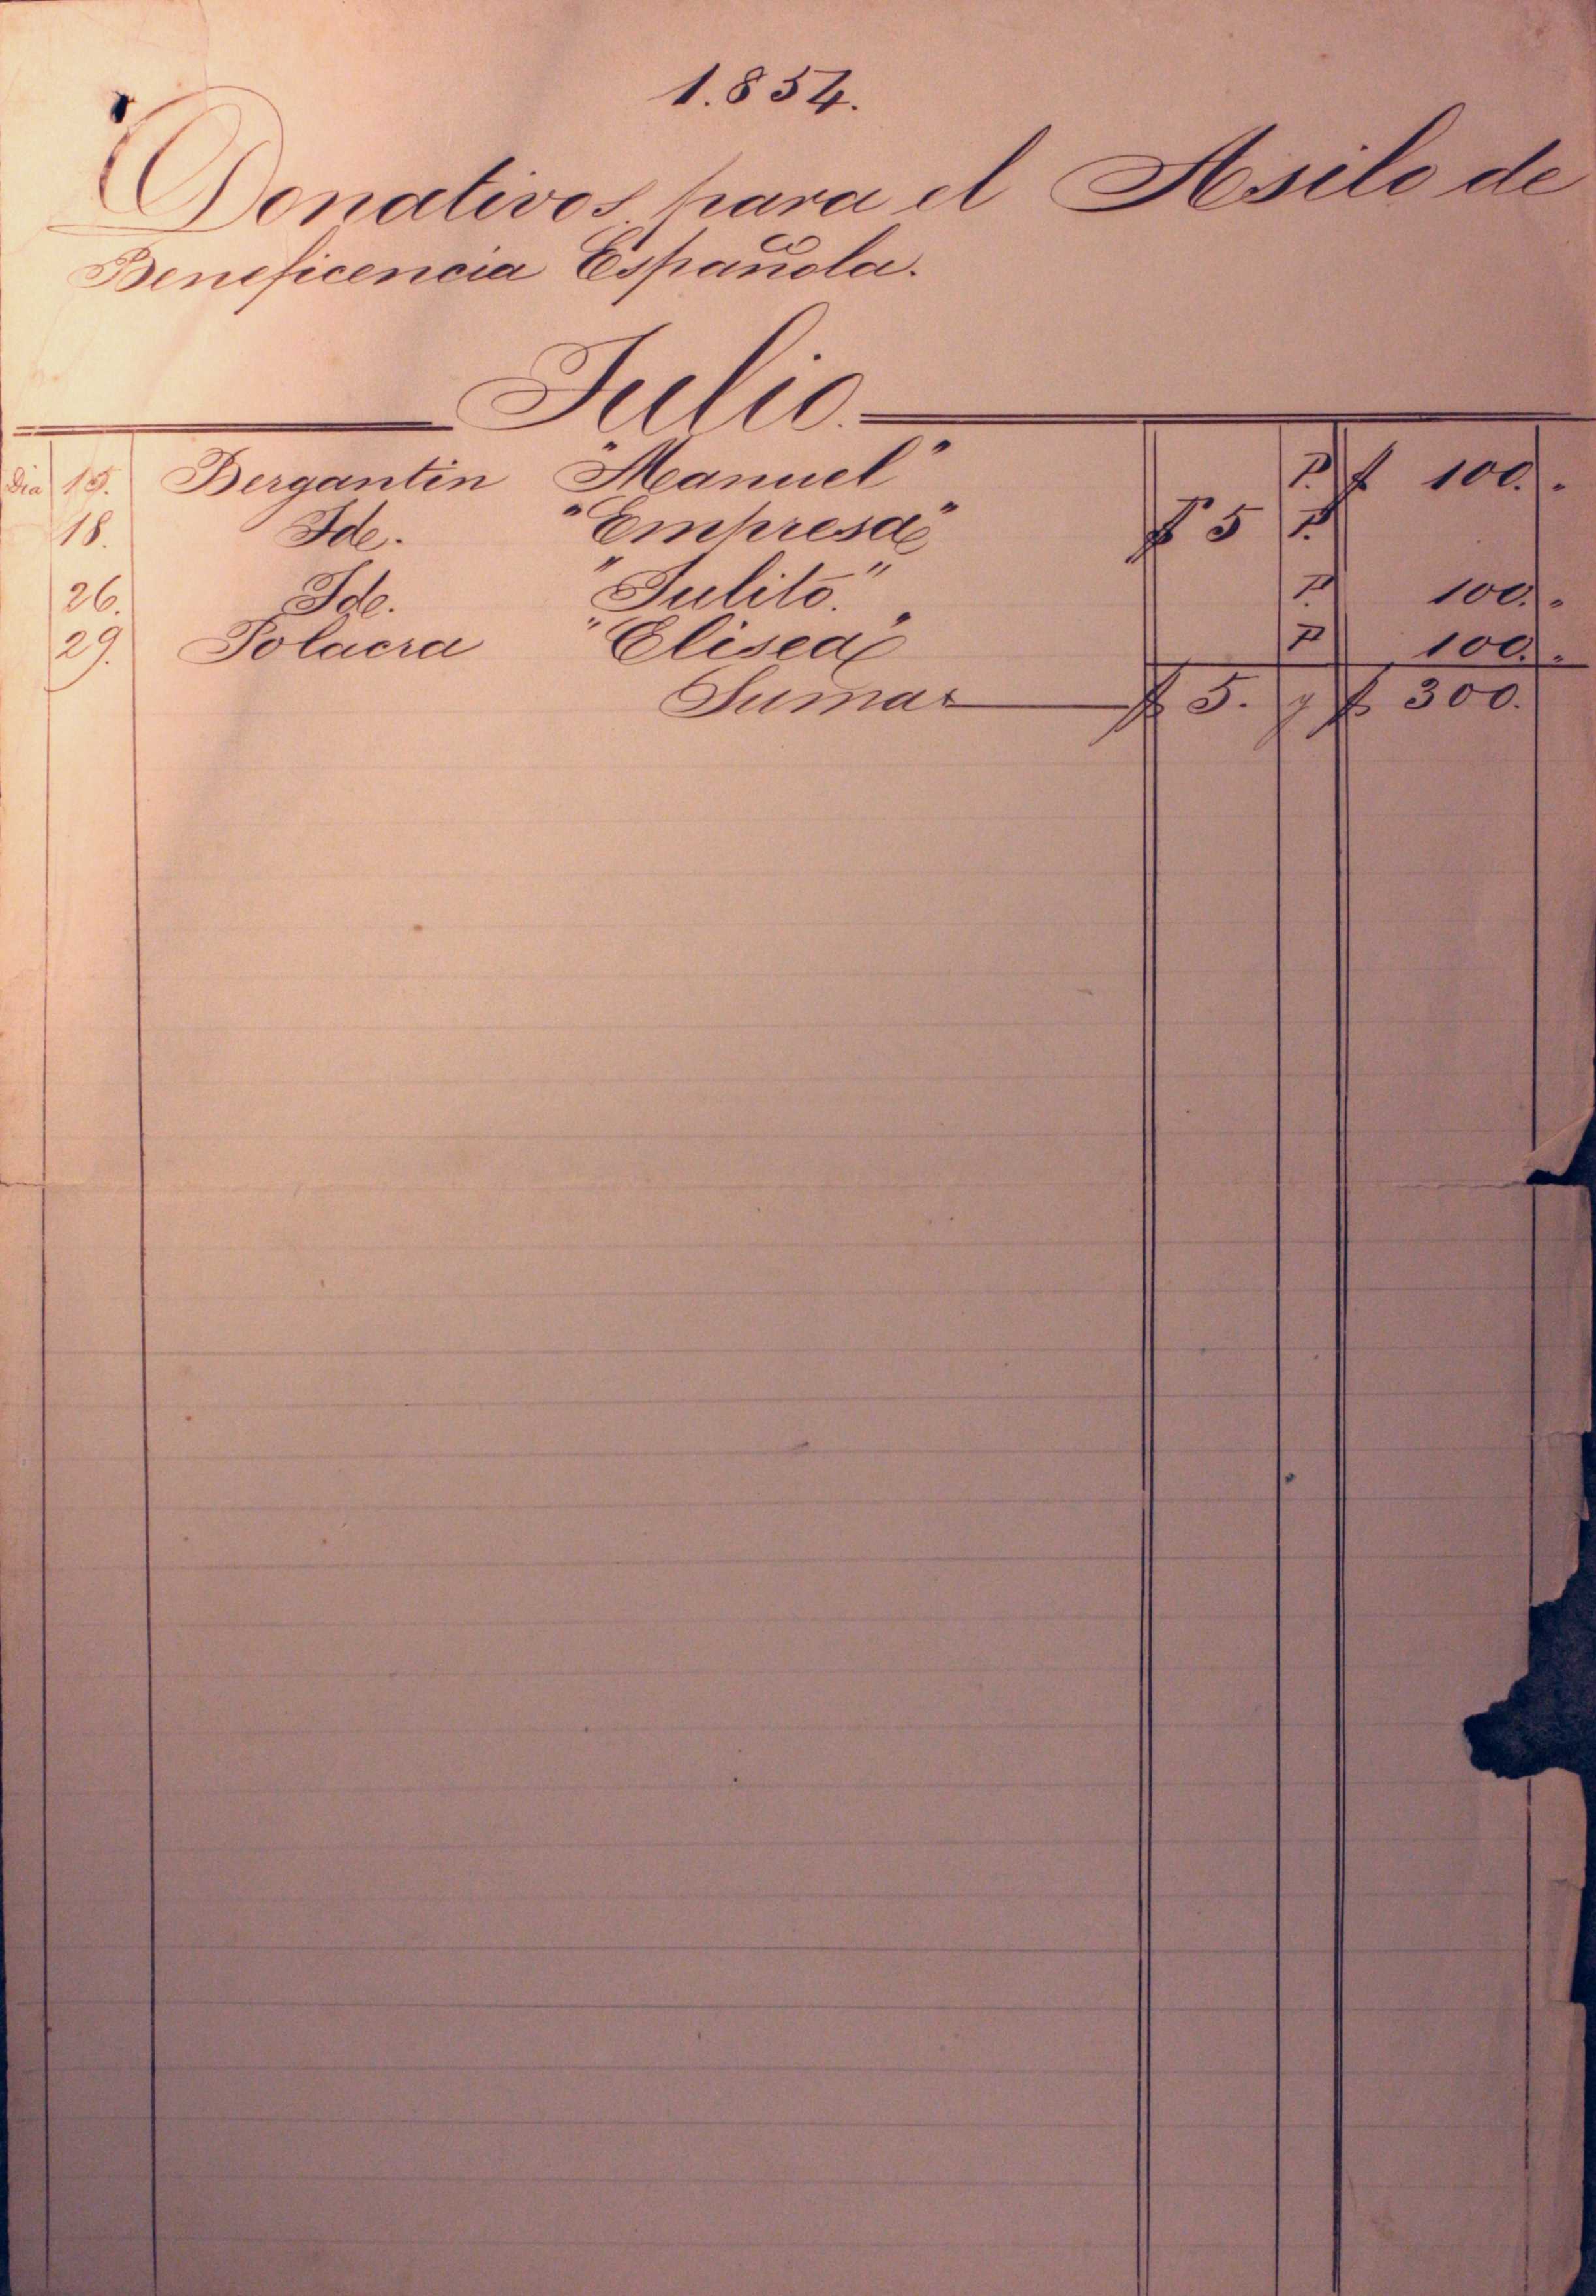 1.854.
Donativos para el Asilo de
Beneficencia Española.
Julio.
Dia 15. Bergantin "Manuel" P. $ 100. "
18. Ide. "Empresa" $ 5 P.
26. Ide. "Julito." P. 100. "
29. Polacra "Elisea" P 100. "
Sumas $ 5. y $ 300.